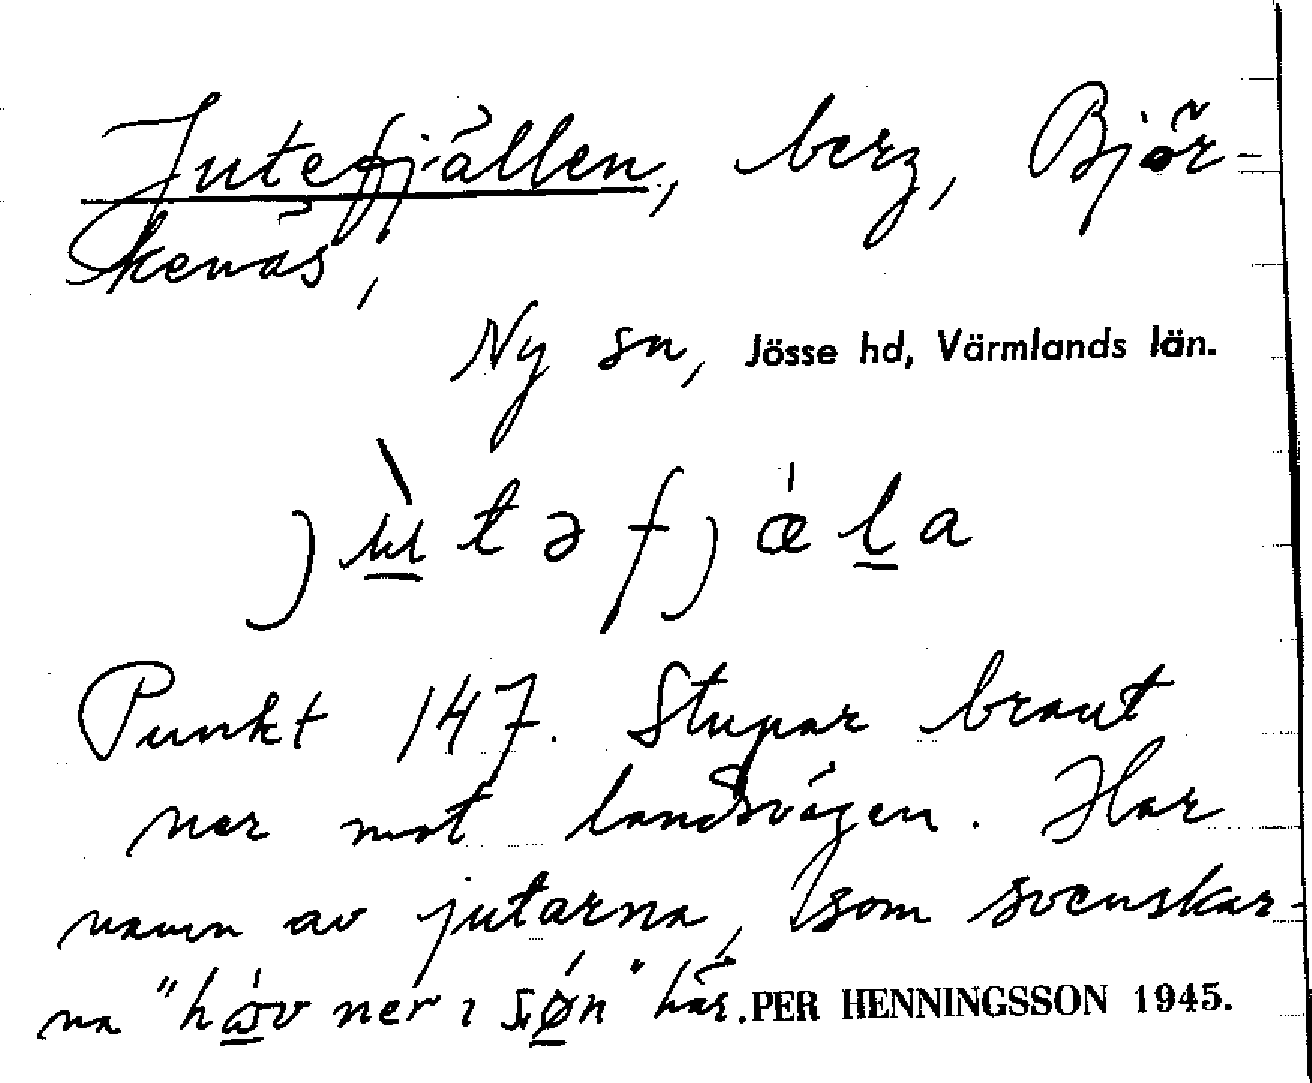 Jutefjällen, berg, Björ-
kenäs,
Ny sn, Jösse hd, Värmlands län.
jùtəfjæ̍la
Punkt 147. Stupar brant
ner mot landsvägen. Har
namn av jutarna, som svenskar-
na "höv ner i søn" här. PER HENNINGSSON 1945.